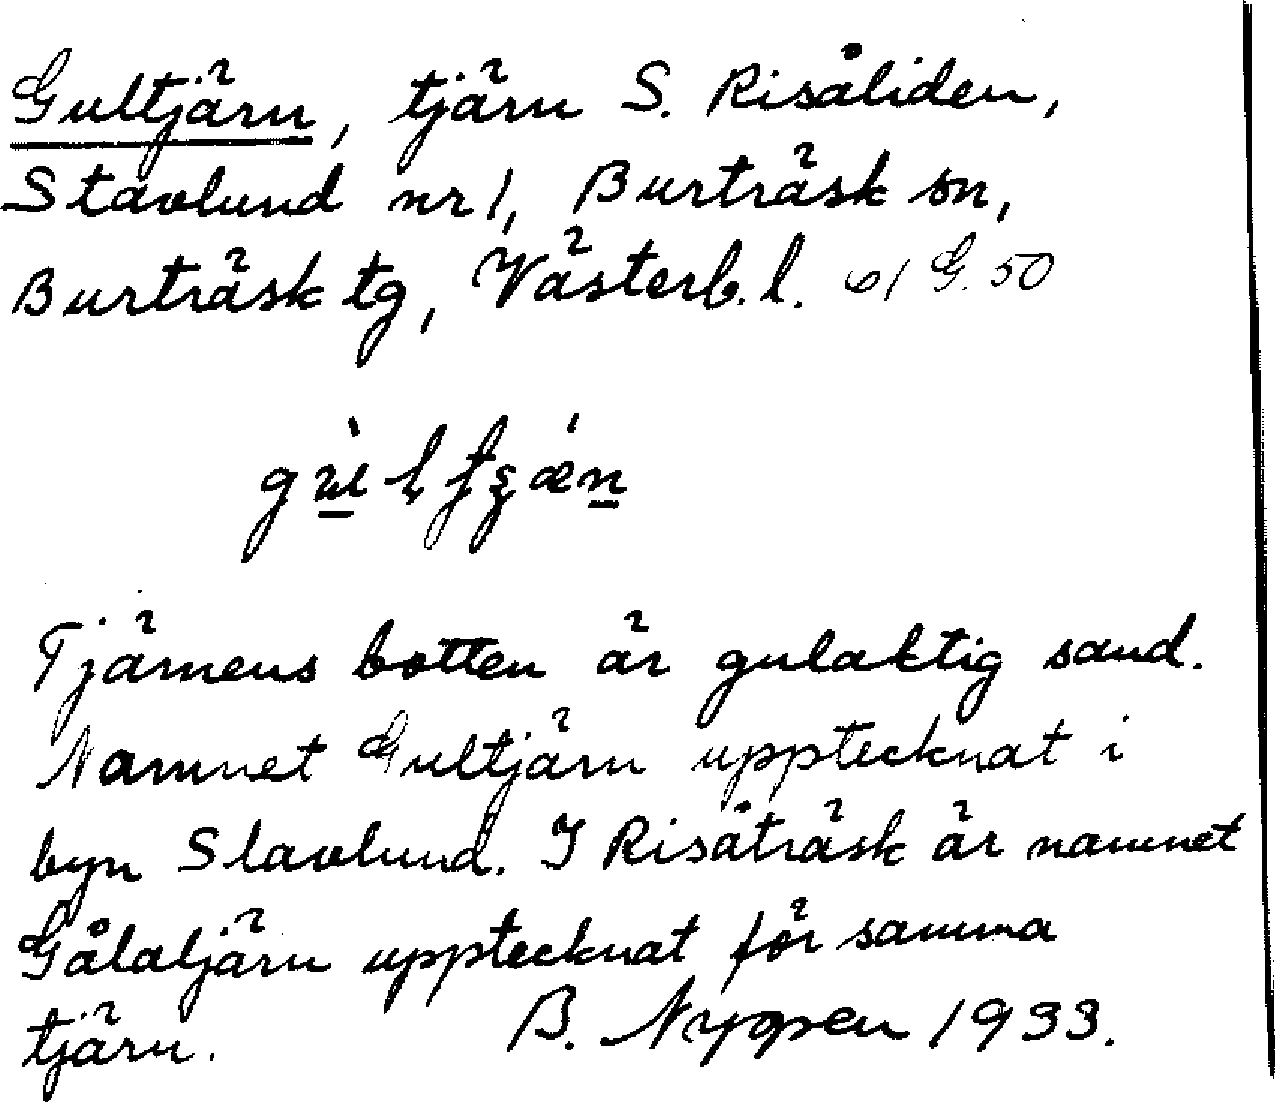 Gultjärn, tjärn S. Risåliden,
Stavlund nr 1, Burträsk sn,
Burträsk tg, Västerb. l. 61 G. 50
Tjärnens botten är gulaktig sand.
Namnet Gultjärn upptecknat i
byn Slavlund. I Risåträsk är namnet
Gålatjärn upptecknat för samma
tjärn. B. Nygren 1933.